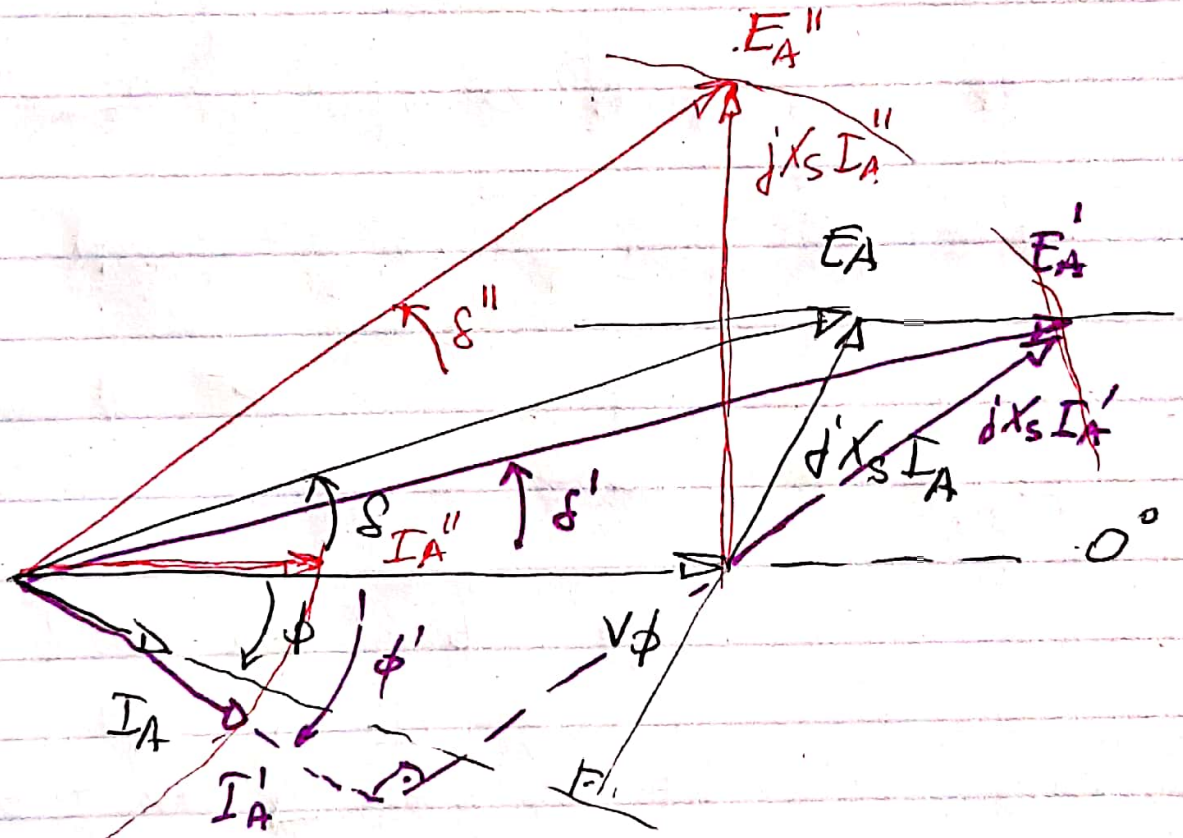 E_A''
jX_S I_A''
E_A
E_A'
δ''
jX_S I_A'
jX_S I_A
δ
δ'
I_A''
0°
ϕ
ϕ'
Vϕ
I_A
I_A'